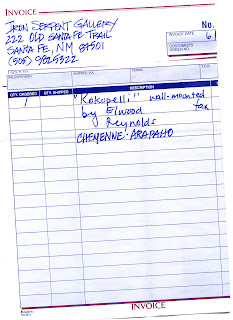 INVOICE
IRON SERPENT GALLERY
222 OLD SANTA FE TRAIL
SANTA FE, NM 87501
(505)
No.
INVOICE DATE
6
CUSTOMER'S ORDER NO.
SALESPERSON
SHIPPED VIA
TERMS
F.O.B.
QTY. ORDERED QTY. SHIPPED DESCRIPTION
1 "Kokopelli" wall-mounted
by Elwood tax
Reynolds
CHEYENNE·ARAPAHO
INVOICE